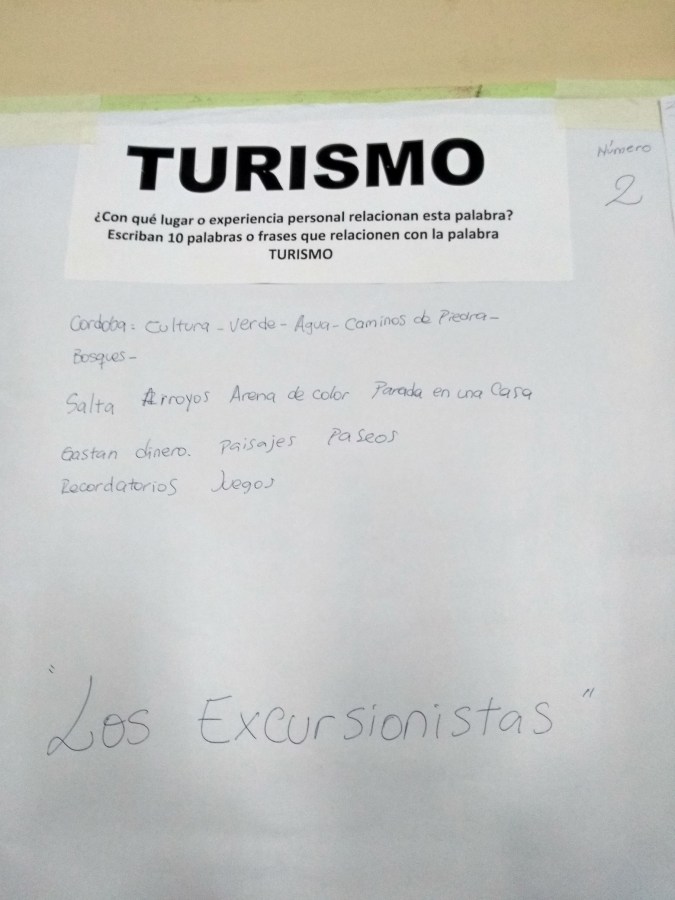 TURISMO
Número
2
¿Con qué lugar o experiencia personal relacionan esta palabra?
Escriban 10 palabras o frases que relacionen con la palabra
TURISMO
Cordoba: Cultura - Verde - Agua - Caminos de Piedra -
Bosques -
Salta Arroyos Arena de color Parada en una Casa
Gastan dinero. Paisajes Paseos
Recordatorios Juegos
"Los Excursionistas"